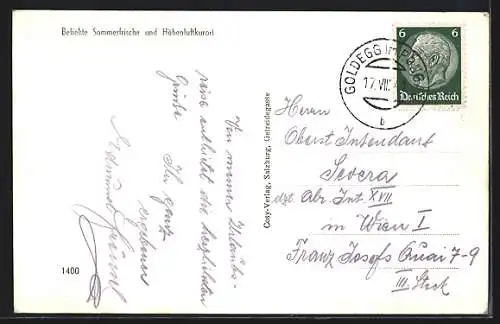 Beliebte Sommerfrische und Höhenluftkurort
Von meiner Urlaubs-
reise entbietet die herzlichsten
Grüße Ihr ganz
ergebener
1400
Cosy-Verlag, Salzburg, Getreidegasse
GOLDEGG IM PONGAU
17. VIII.
b
6 6
Deutsches Reich
Herrn
Oberst Intendant
Severa
dzt Abr. Int. XVII
in Wien I
Franz Josefs Quai 7-9
III. Stock